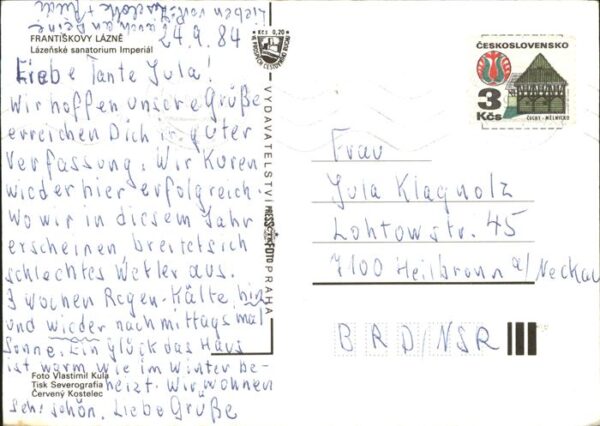 Lieben
auch an Deine
FRANTIŠKOVY LÁZNĚ
Lázeňské sanatorium Imperiál
24.9.84
Kčs 0,20
Liebe Tante Jula!
Wir hoffen unsere Grüße
erreichen Dich in guter
Verfassung. Wir Kuren
wieder hier erfolgreich.
Wo wir in diesem Jahr
erscheinen breitet sich
schlechtes Wetter aus.
3 Wochen Regen-Kälte hin
und wieder nachmittags mal
Sonne. Ein glück das Haus
ist warm wie im Winter be-
heizt. Wir wohnen
sehr schön. Liebe Grüße
Foto Vlastimil Kula
Tisk Severografia
Červený Kostelec
VYDAVATELSTVÍ PRESSFOTO PRAHA
ČESKOSLOVENSKO
3 Kčs
ČECHY - MĚLNICKO
Frau
Jula Klagholz
Lohtorstr. 45
7100 Heilbronn a/Neckar
BRD/NSR